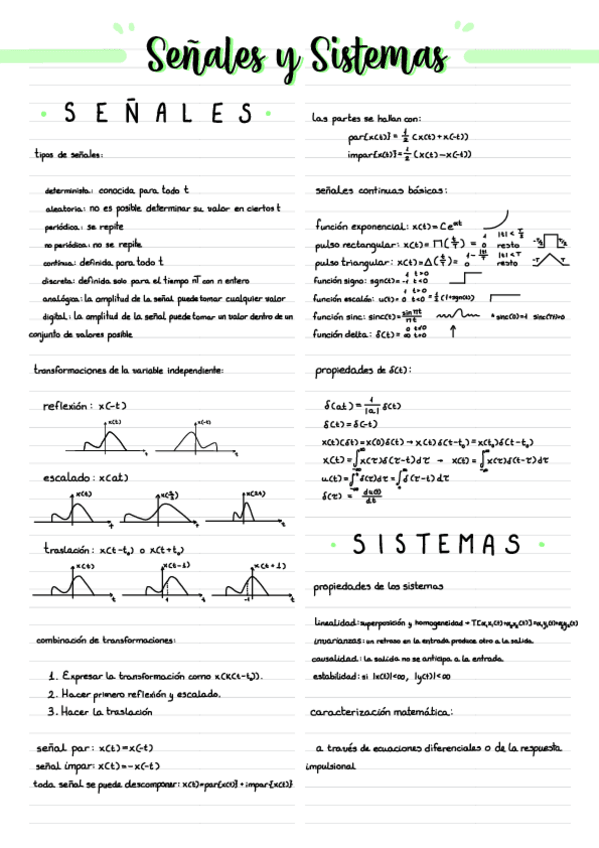 Señales y Sistemas
SEÑALES
tipos de señales:
determinista: conocida para todo t
aleatoria: no es posible determinar su valor en ciertos t
periódica: se repite
no periódica: no se repite
continua: definida para todo t
discreta: definida solo para el tiempo nT con n entero
analógica: la amplitud de la señal puede tomar cualquier valor
digital: la amplitud de la señal puede tomar un valor dentro de un
conjunto de valores posible
transformaciones de la variable independiente:
reflexión: x(-t)
x(t) x(-t)
t t
escalado: x(at)
x(t) x(t/2) x(2t)
t t t
traslación: x(t-t₀) o x(t+t₀)
x(t) x(t-1) x(t+1)
t 1 t -1 t
combinación de transformaciones:
1. Expresar la transformación como x(k(t-t₀)).
2. Hacer primero reflexión y escalado.
3. Hacer la traslación
señal par: x(t)=x(-t)
señal impar: x(t)=-x(-t)
toda señal se puede descomponer: x(t)=par{x(t)}+impar{x(t)}
las partes se hallan con:
par{x(t)}=1/2 (x(t)+x(-t))
impar{x(t)}=1/2 (x(t)-x(-t))
señales continuas básicas:
función exponencial: x(t)=Ce^at
pulso rectangular: x(t)=Π(t/T)= 1 |t|<T/2 0 resto -T/2 T/2
pulso triangular: x(t)=Δ(t/T)= 1-|t|/T |t|<T 0 resto -T T
función signo: sgn(t)= 1 t>0 -1 t<0
función escalón: u(t)= 1 t>0 0 t<0 =1/2(1+sgn(t))
función sinc: sinc(t)=sin πt/πt *sinc(0)=1 sinc(n)=0
función delta: δ(t)= 0 t≠0 ∞ t=0
propiedades de δ(t):
δ(at)=1/|a| δ(t)
δ(t)=δ(-t)
x(t)δ(t)=x(0)δ(t)→x(t)δ(t-t₀)=x(t₀)δ(t-t₀)
x(t)=∫x(τ)δ(τ-t)dτ → x(t)=∫x(τ)δ(t-τ)dτ
u(t)=∫δ(τ)dτ=∫δ(τ-t)dτ
δ(τ)=du(t)/dt
SISTEMAS
propiedades de los sistemas
linealidad: superposición y homogeneidad → T[a₁x₁(t)+a₂x₂(t)]=a₁y₁(t)+a₂y₂(t)
invarianzas: un retraso en la entrada produce otro a la salida.
causalidad: la salida no se anticipa a la entrada.
estabilidad: si |x(t)|<∞, |y(t)|<∞
caracterización matemática:
a través de ecuaciones diferenciales o de la respuesta
impulsional